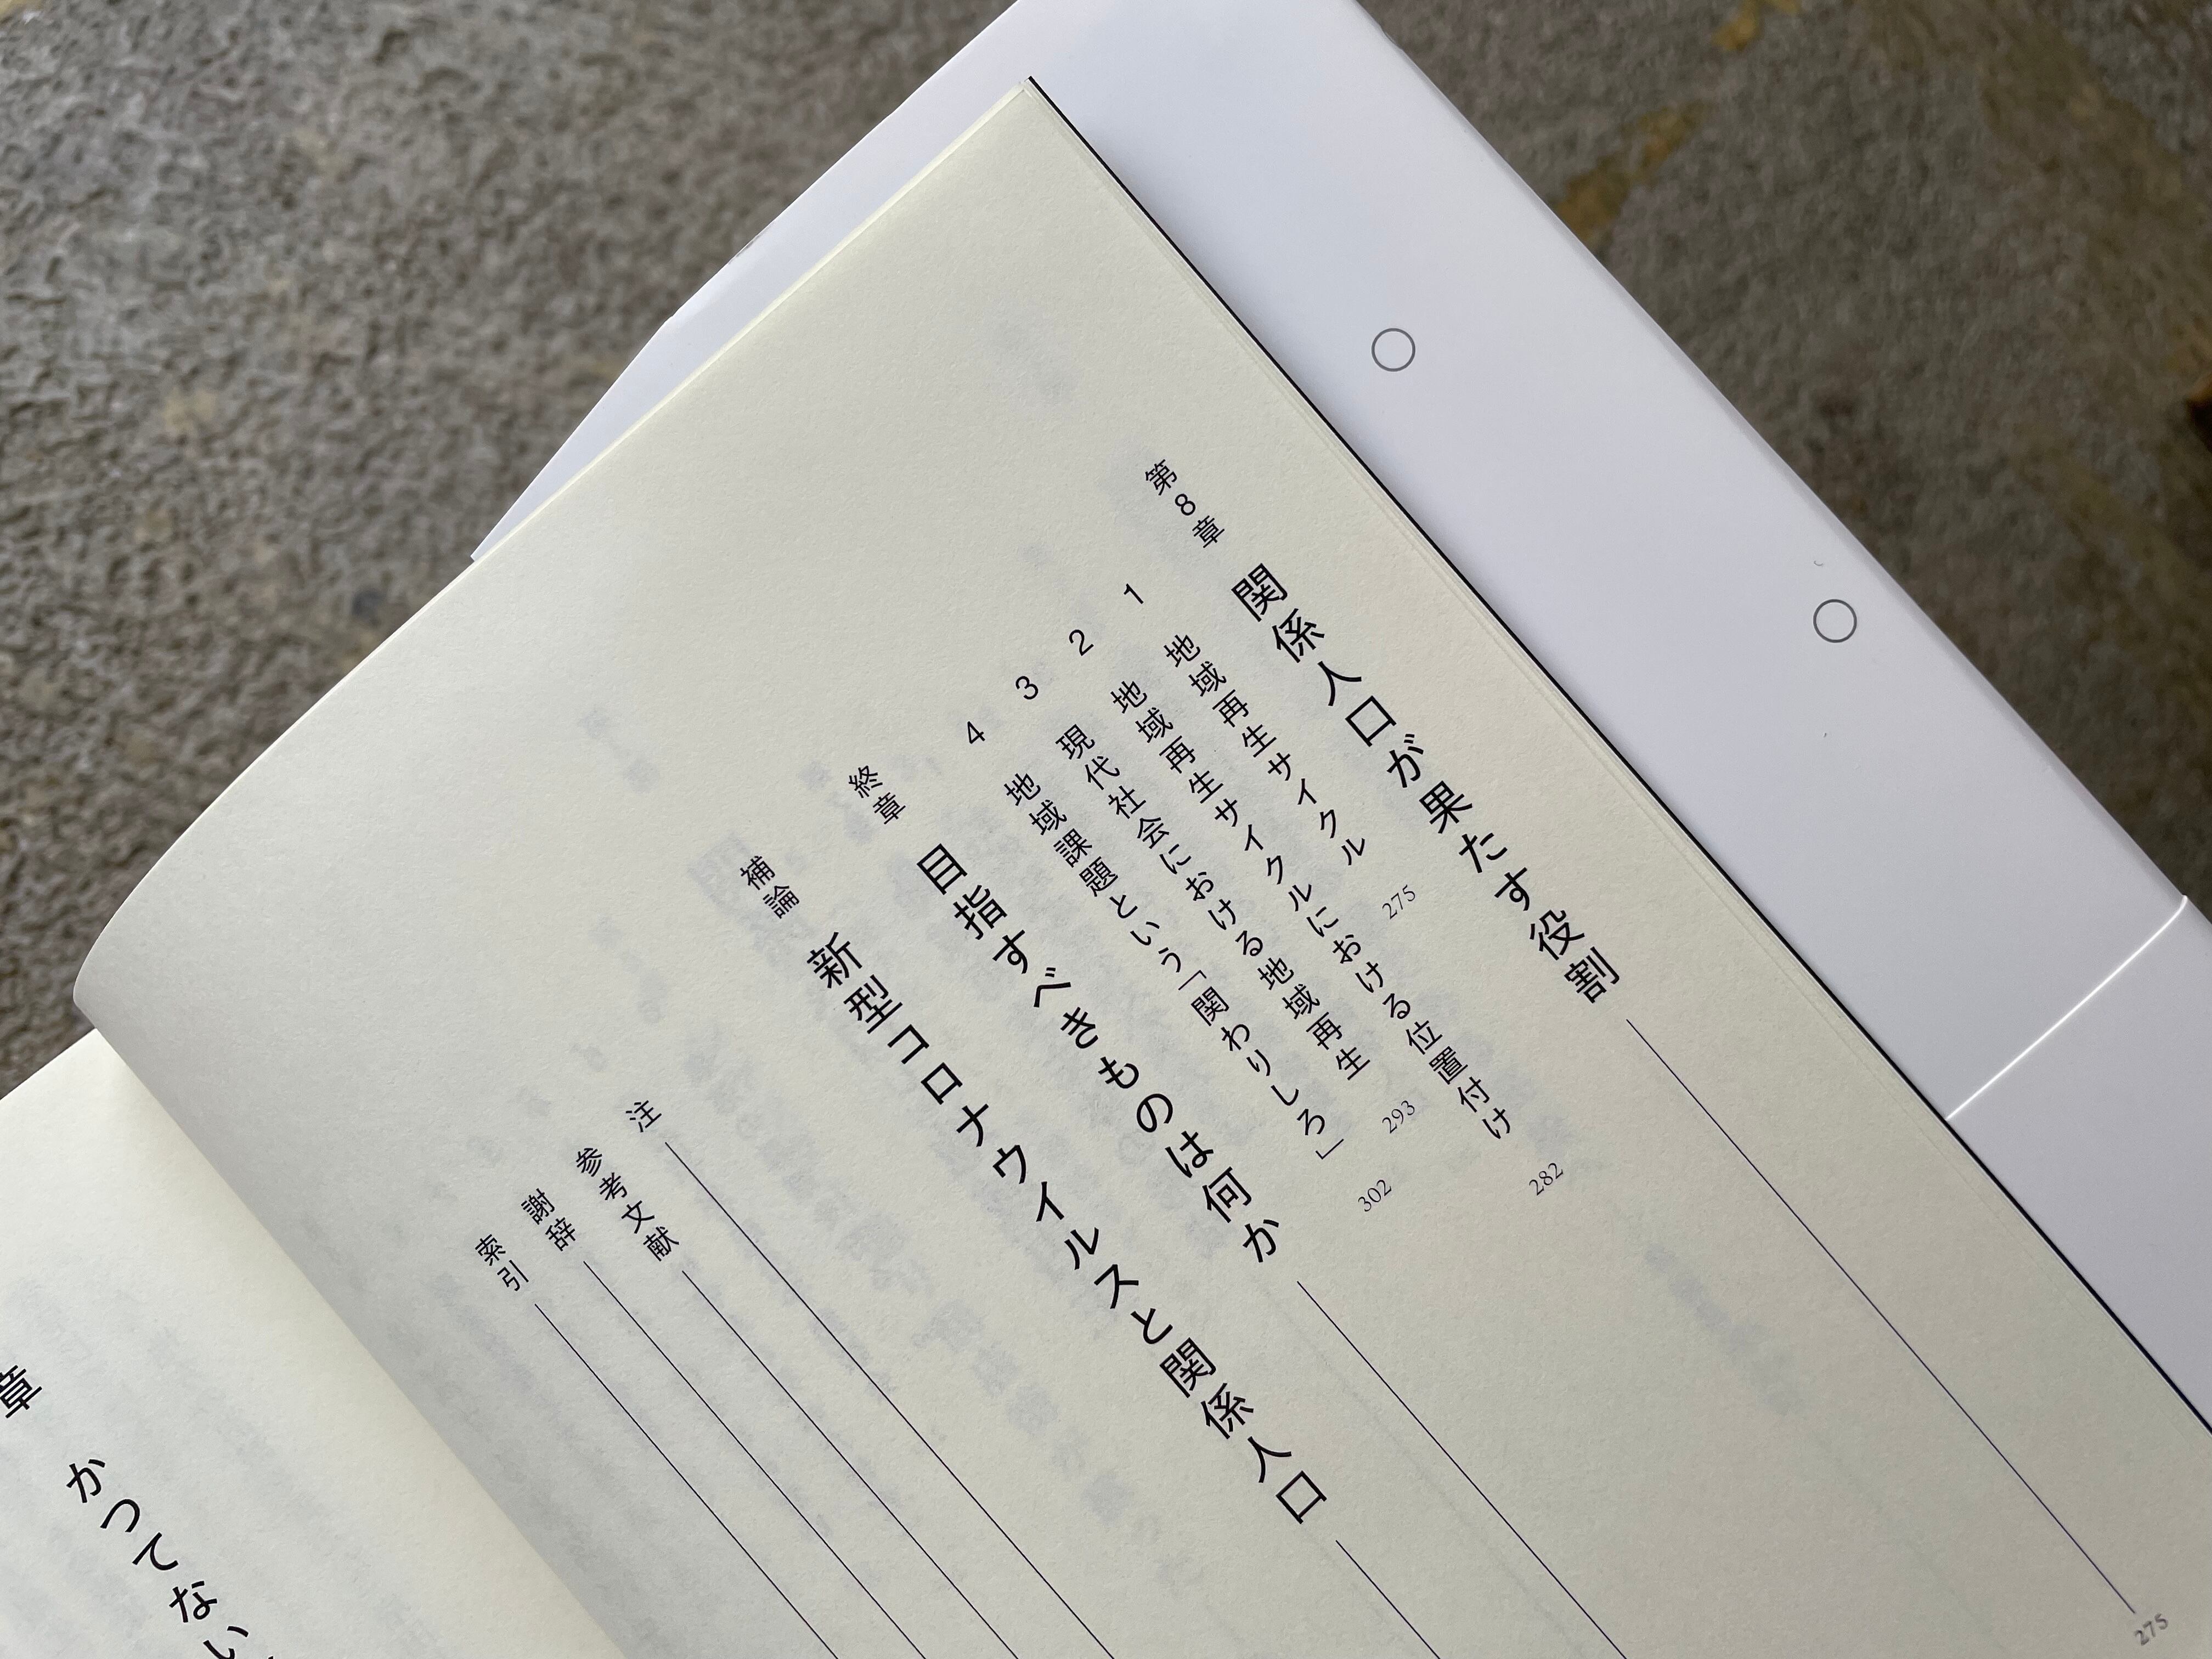 第8章 関係人口が果たす役割 275
1 地域再生サイクル 275
2 地域再生サイクルにおける位置付け 282
3 現代社会における地域再生 293
4 地域課題という「関わりしろ」 302
終章 目指すべきものは何か
補論 新型コロナウイルスと関係人口
注
参考文献
謝辞
索引
章 かつてない